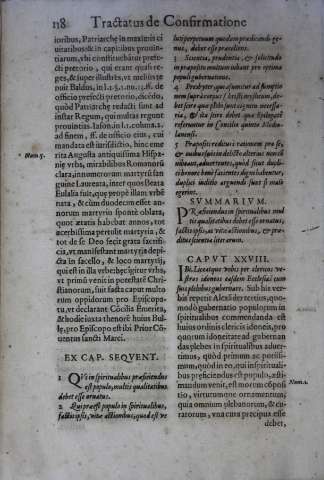 118 Tractatus de Confirmatione
ioribus, Patriarchę in maximis ci
uitatibus & in capitibus prouin-
tiarum, vbi constituebantur præfe-
cti prętorio, qui erant quasi re-
ges, & super illustrès, vt melius te
nuit Baldus, in l.1. §.1. nu. 13. ff. de
officio præfecti prætorio,
quòd Patriarchę redacti sunt ad
instar Regum, qui multas regunt
prouintias. Iason. in l.1. columna 2.
ad finem, ff. de officio eius, cui
mandata est iurisdictio, hinc eme
rita Augusta antiquissima Hispa
nię vrbs, mirabilibus Romanorũ
clara, innumerorum martyrũ san
guine Laureata, inter quos beata
Eulalia fuit, quę propè illam vrbẽ
nata, & cùm duodecim esset an-
norum martyria sponte oblata,
quot ætatis habebat annos, tot
acerbissima pertulit martyria, &
tot de se Deo fecit grata sacrifi-
cia, vt manifestant martyria depi
cta in sacello, & loco martyrij,
qui est in illa vrbe: hęc igitur vrbs,
vt primũ venit in potestatẽ Chri-
stianorum, fuit facta caput multo
rum oppidorum pro Episcopa-
tu, vt declarant Cõcilia Emerita,
& hodie iuxta thenorẽ huius Bul
lę, pro Episcopo est ibi Prior Cõ
uentus sancti Marci.
EX CAP. SEQVENT.
1 Qvis in spiritualibus præficiendus
est populo, multis qualitatibus
debet esse ornatus.
2 Qui præest populo in spiritualibus,
factis ipsis, vitæ actionibus, quod est ve
luti perpetuum quoddam prædicandi ge-
nus, debet esse præcellens.
3 Scientia, prudentia, & solicitudo
in præposito multum iuuant pro optima
populi gubernatione.
4 Presbyter quæ
debet scire quo ipsis sunt
ria, & ita scire debet
referuntur in Concilio quinto Mediolanensi.
5 Præpositi reditus
se, & quibus
ribuant, aduertentes, quòd sicut dupli-
ci honore bene facientes digni habentur,
duplici meritò arguendi sunt si male
egerint.
SVMMARIVM.
PRæficiendus in spiritualibus mul
tis qualitatibus debet esse ornatus,
factis ipsis, ac vitæ actionibus, & præ-
ditus scientia literarum.
CAPVT XXVIII.
IBi. Licetque vobis per clericos ve-
stros idoneos easdem Ecclesias cum
suis plebibus gubernare. Sub his ver-
bis repetit Alexãder tertius, quo-
modo gubernatio populorum in
spiritualibus commendanda est
huius ordinis clericis idoneis, pro
quorum idoneitate ad gubernan
das plebes in spiritualibus aduer-
timus, quòd primum ac potissi-
mum, quòd in eo, qui in spirituali-
bus præficiendus est populo, ęsti-
mandum venit, est morum cõposi
tio, virtutumque ornamentum;
quia omnium plebanorum, & cu-
ratorum, vna cura precipua esse
debet,
Num. 5.
Num. 1.